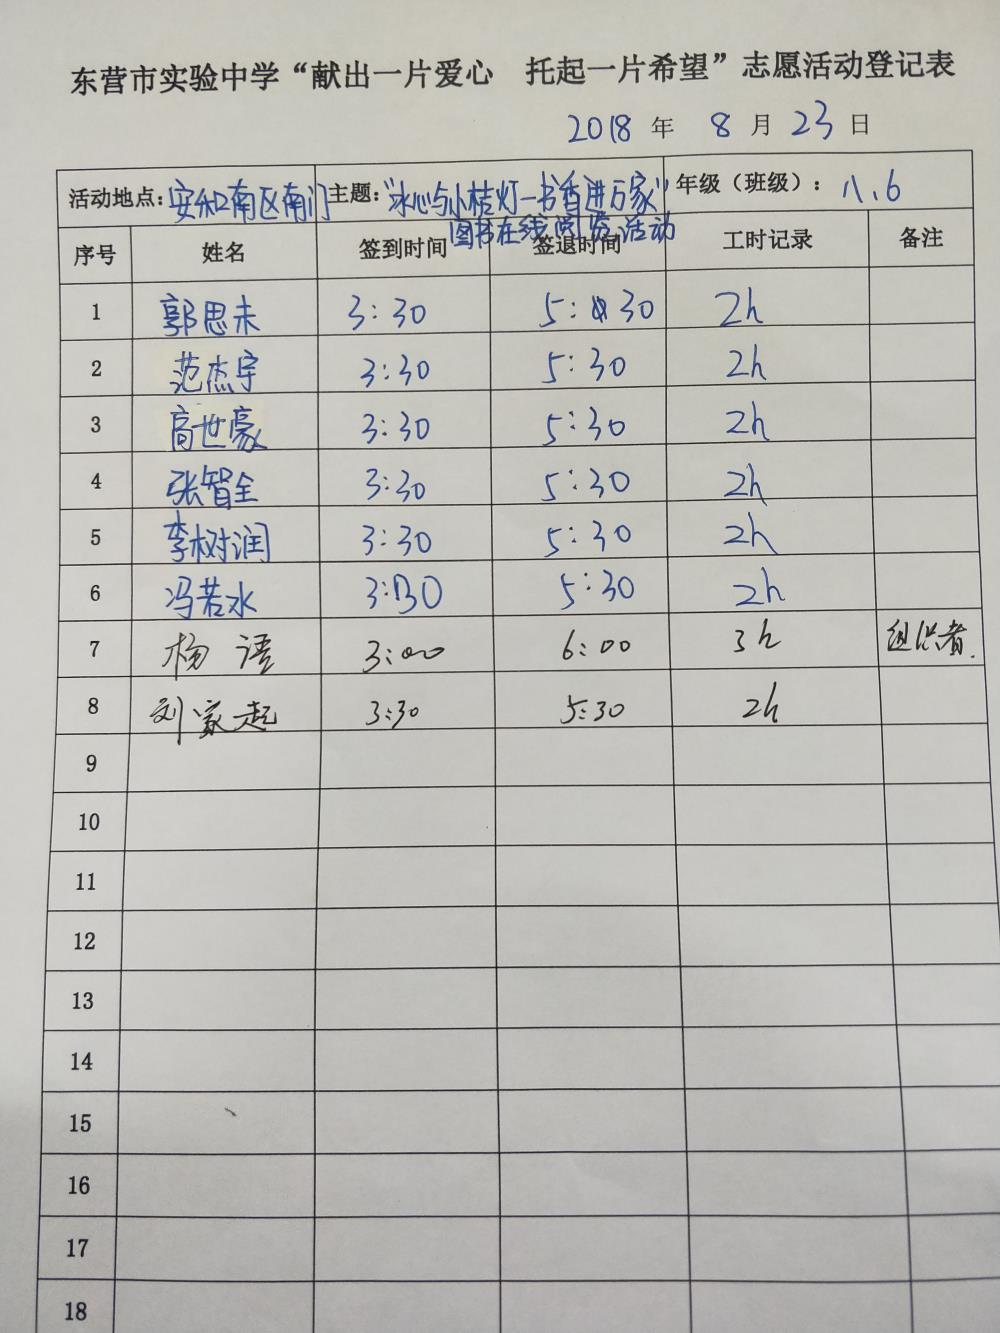 东营市实验中学“献出一片爱心 托起一片希望”志愿活动登记表
2018 年 8 月 23 日
活动地点:安和南区南门 主题:“冰心与小桔灯—书香进万家” 年级(班级): 八、6
图书在线阅览活动
序号 姓名 签到时间 签退时间 工时记录 备注
1 郭思未 3:30 5:30 2h
2 范杰宇 3:30 5:30 2h
3 高世豪 3:30 5:30 2h
4 张智全 3:30 5:30 2h
5 李树润 3:30 5:30 2h
6 冯若水 3:30 5:30 2h
7 杨语 3:00 6:00 3h 组织者.
8 刘家起 3:30 5:30 2h
9
10
11
12
13
14
15
16
17
18